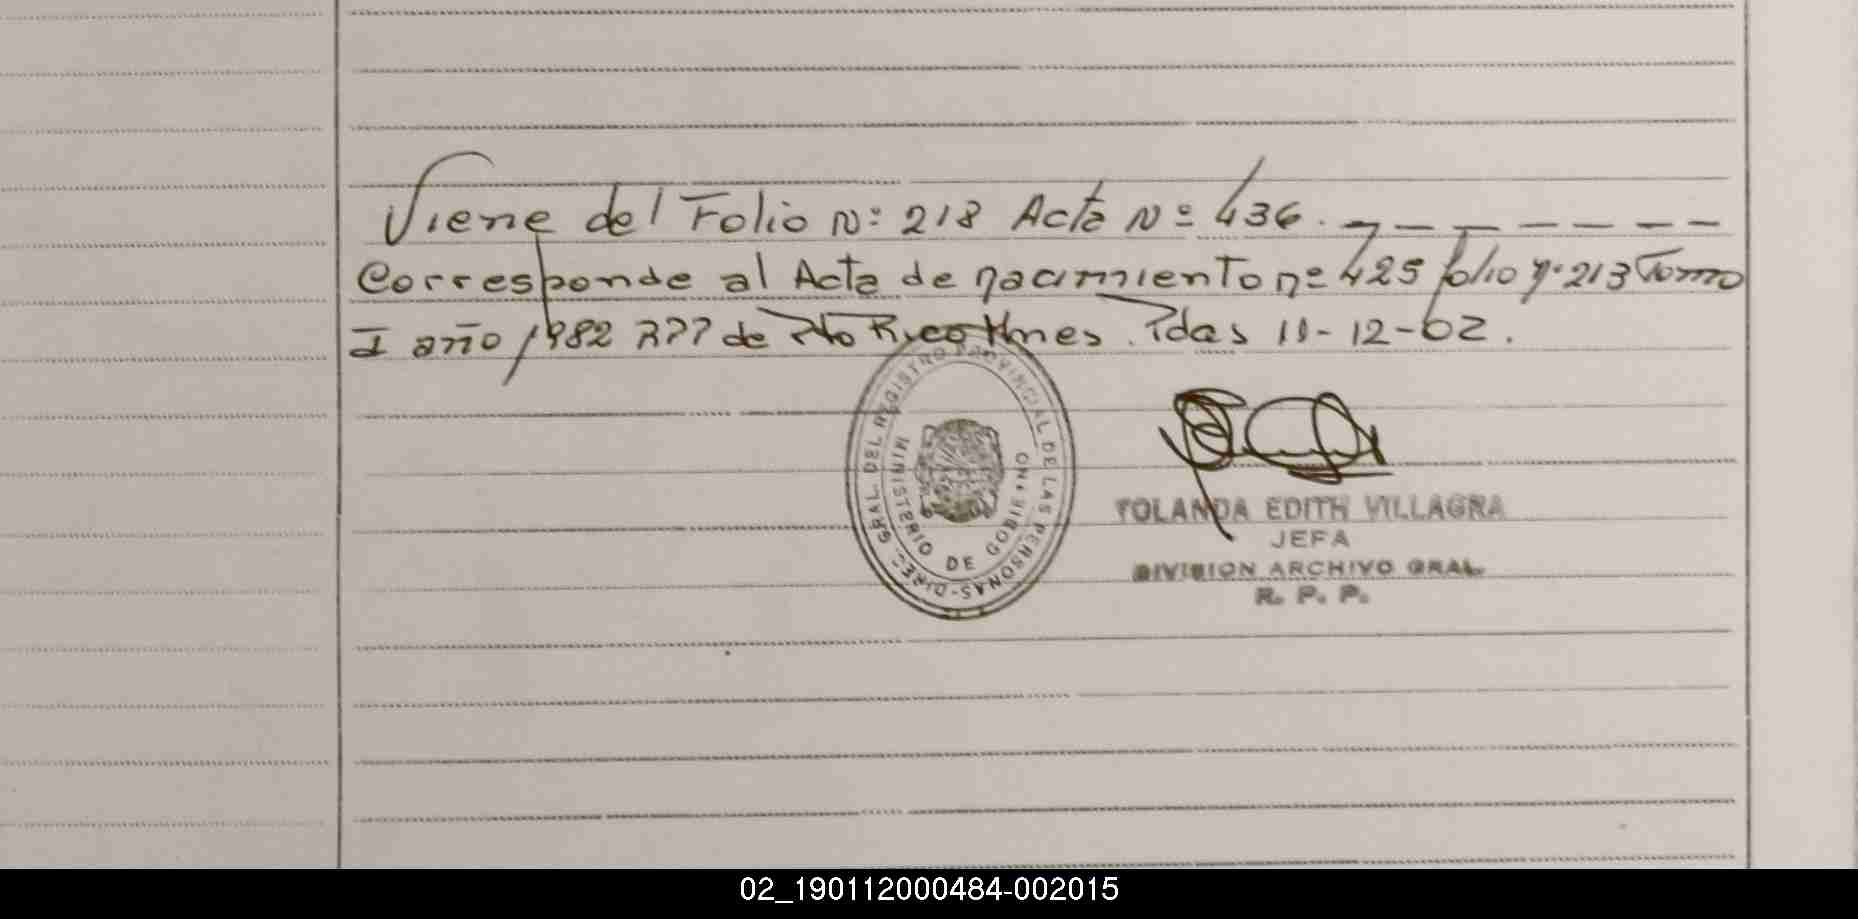 Viene del Folio Nº 218 Acta Nº 436. _ _ _ _ _ _ _
Corresponde al Acta de nacimiento nº 425 folio nº 213 Tomo
I año 1982 RPP de Pto Rico Mnes. Pdas 11-12-02.
DIREC. GRAL. DEL REGISTRO PROVINCIAL DE LAS PERSONAS-
MINISTERIO DE GOBIERNO
YOLANDA EDITH VILLAGRA
JEFA
DIVISION ARCHIVO GRAL.
R. P. P.
02_190112000484-002015